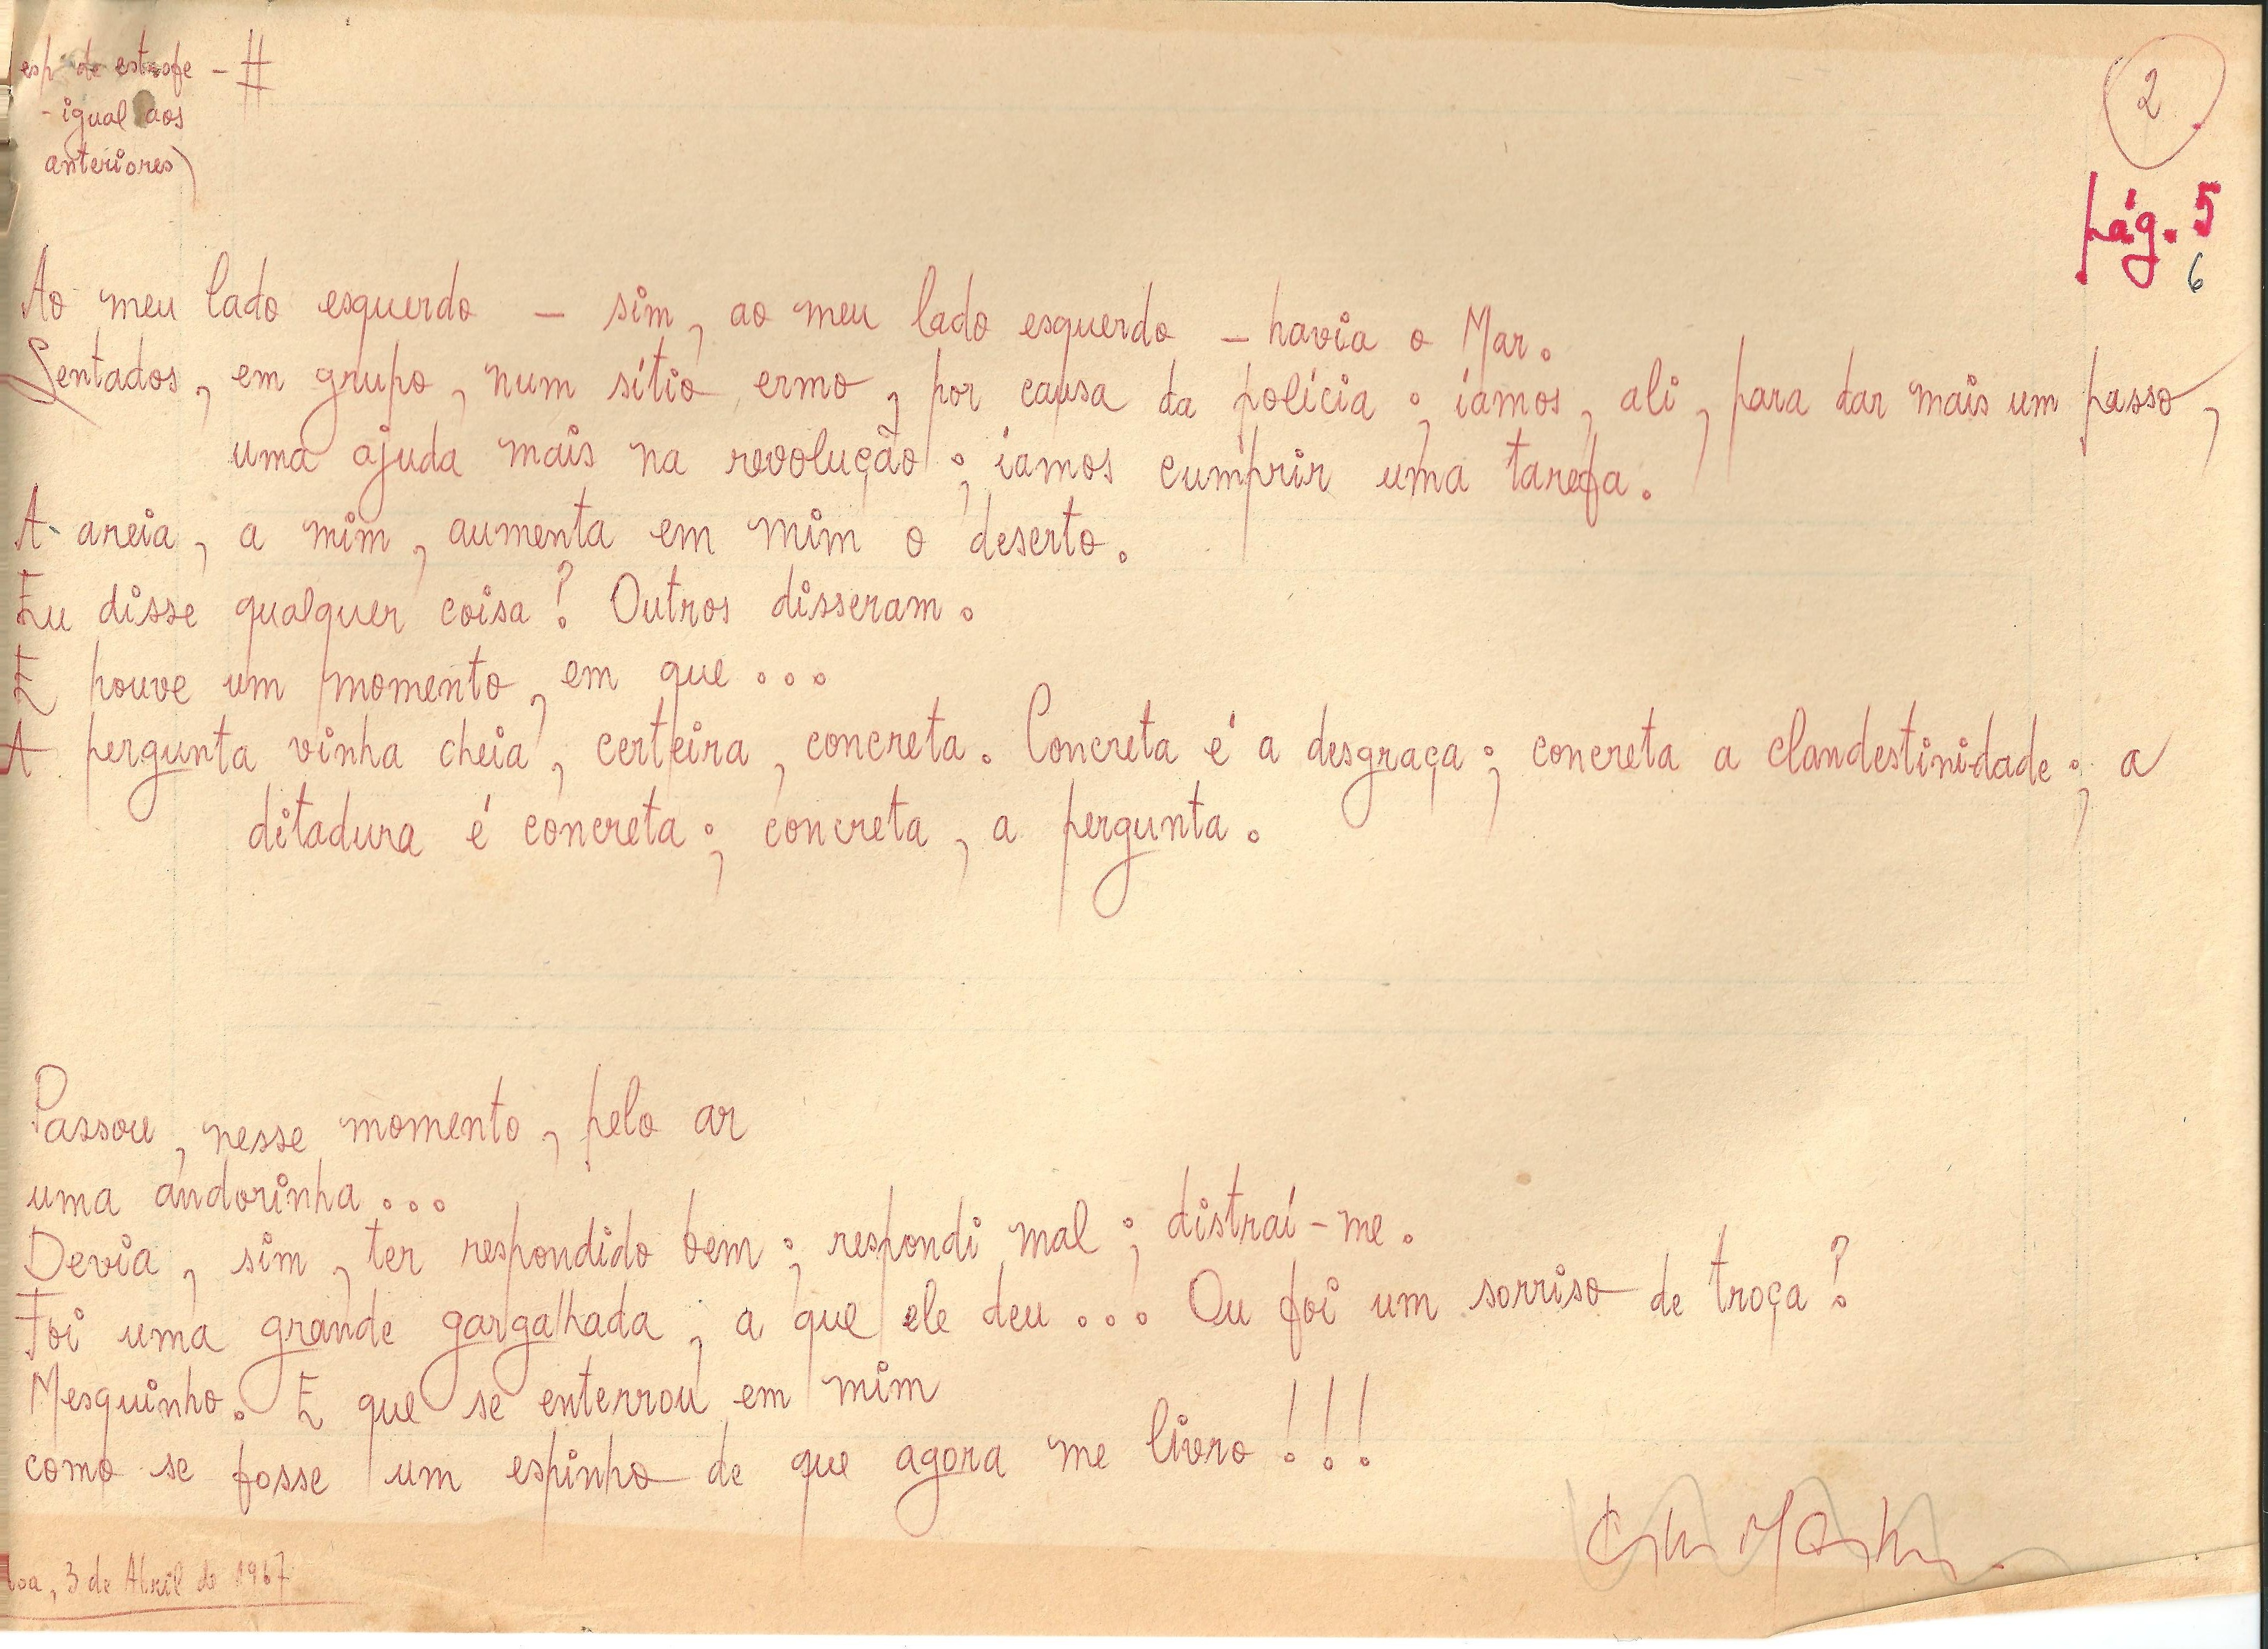 esp. de estrofe - #
- igual aos
anteriores)
2
pág. 5
6
Ao meu lado esquerdo – sim, ao meu lado esquerdo – havia o Mar.
Sentados, em grupo, num sítio ermo, por causa da polícia; íamos, ali, para dar mais um passo,
uma ajuda mais na revolução; íamos cumprir uma tarefa.
A areia, a mim, aumenta em mim o deserto.
Eu disse qualquer coisa? Outros disseram.
E houve um momento, em que...
A pergunta vinha cheia, certeira, concreta. Concreta é a desgraça; concreta a clandestinidade; a
ditadura é concreta; concreta, a pergunta.
Passou, nesse momento, pelo ar
uma andorinha...
Devia, sim, ter respondido bem; respondi mal; distraí-me.
Foi uma grande gargalhada, a que ele deu... Ou foi um sorriso de troça?
Mesquinho. E que se enterrou em mim
como se fosse um espinho de que agora me livro!!!
oa, 3 de Abril de 1967